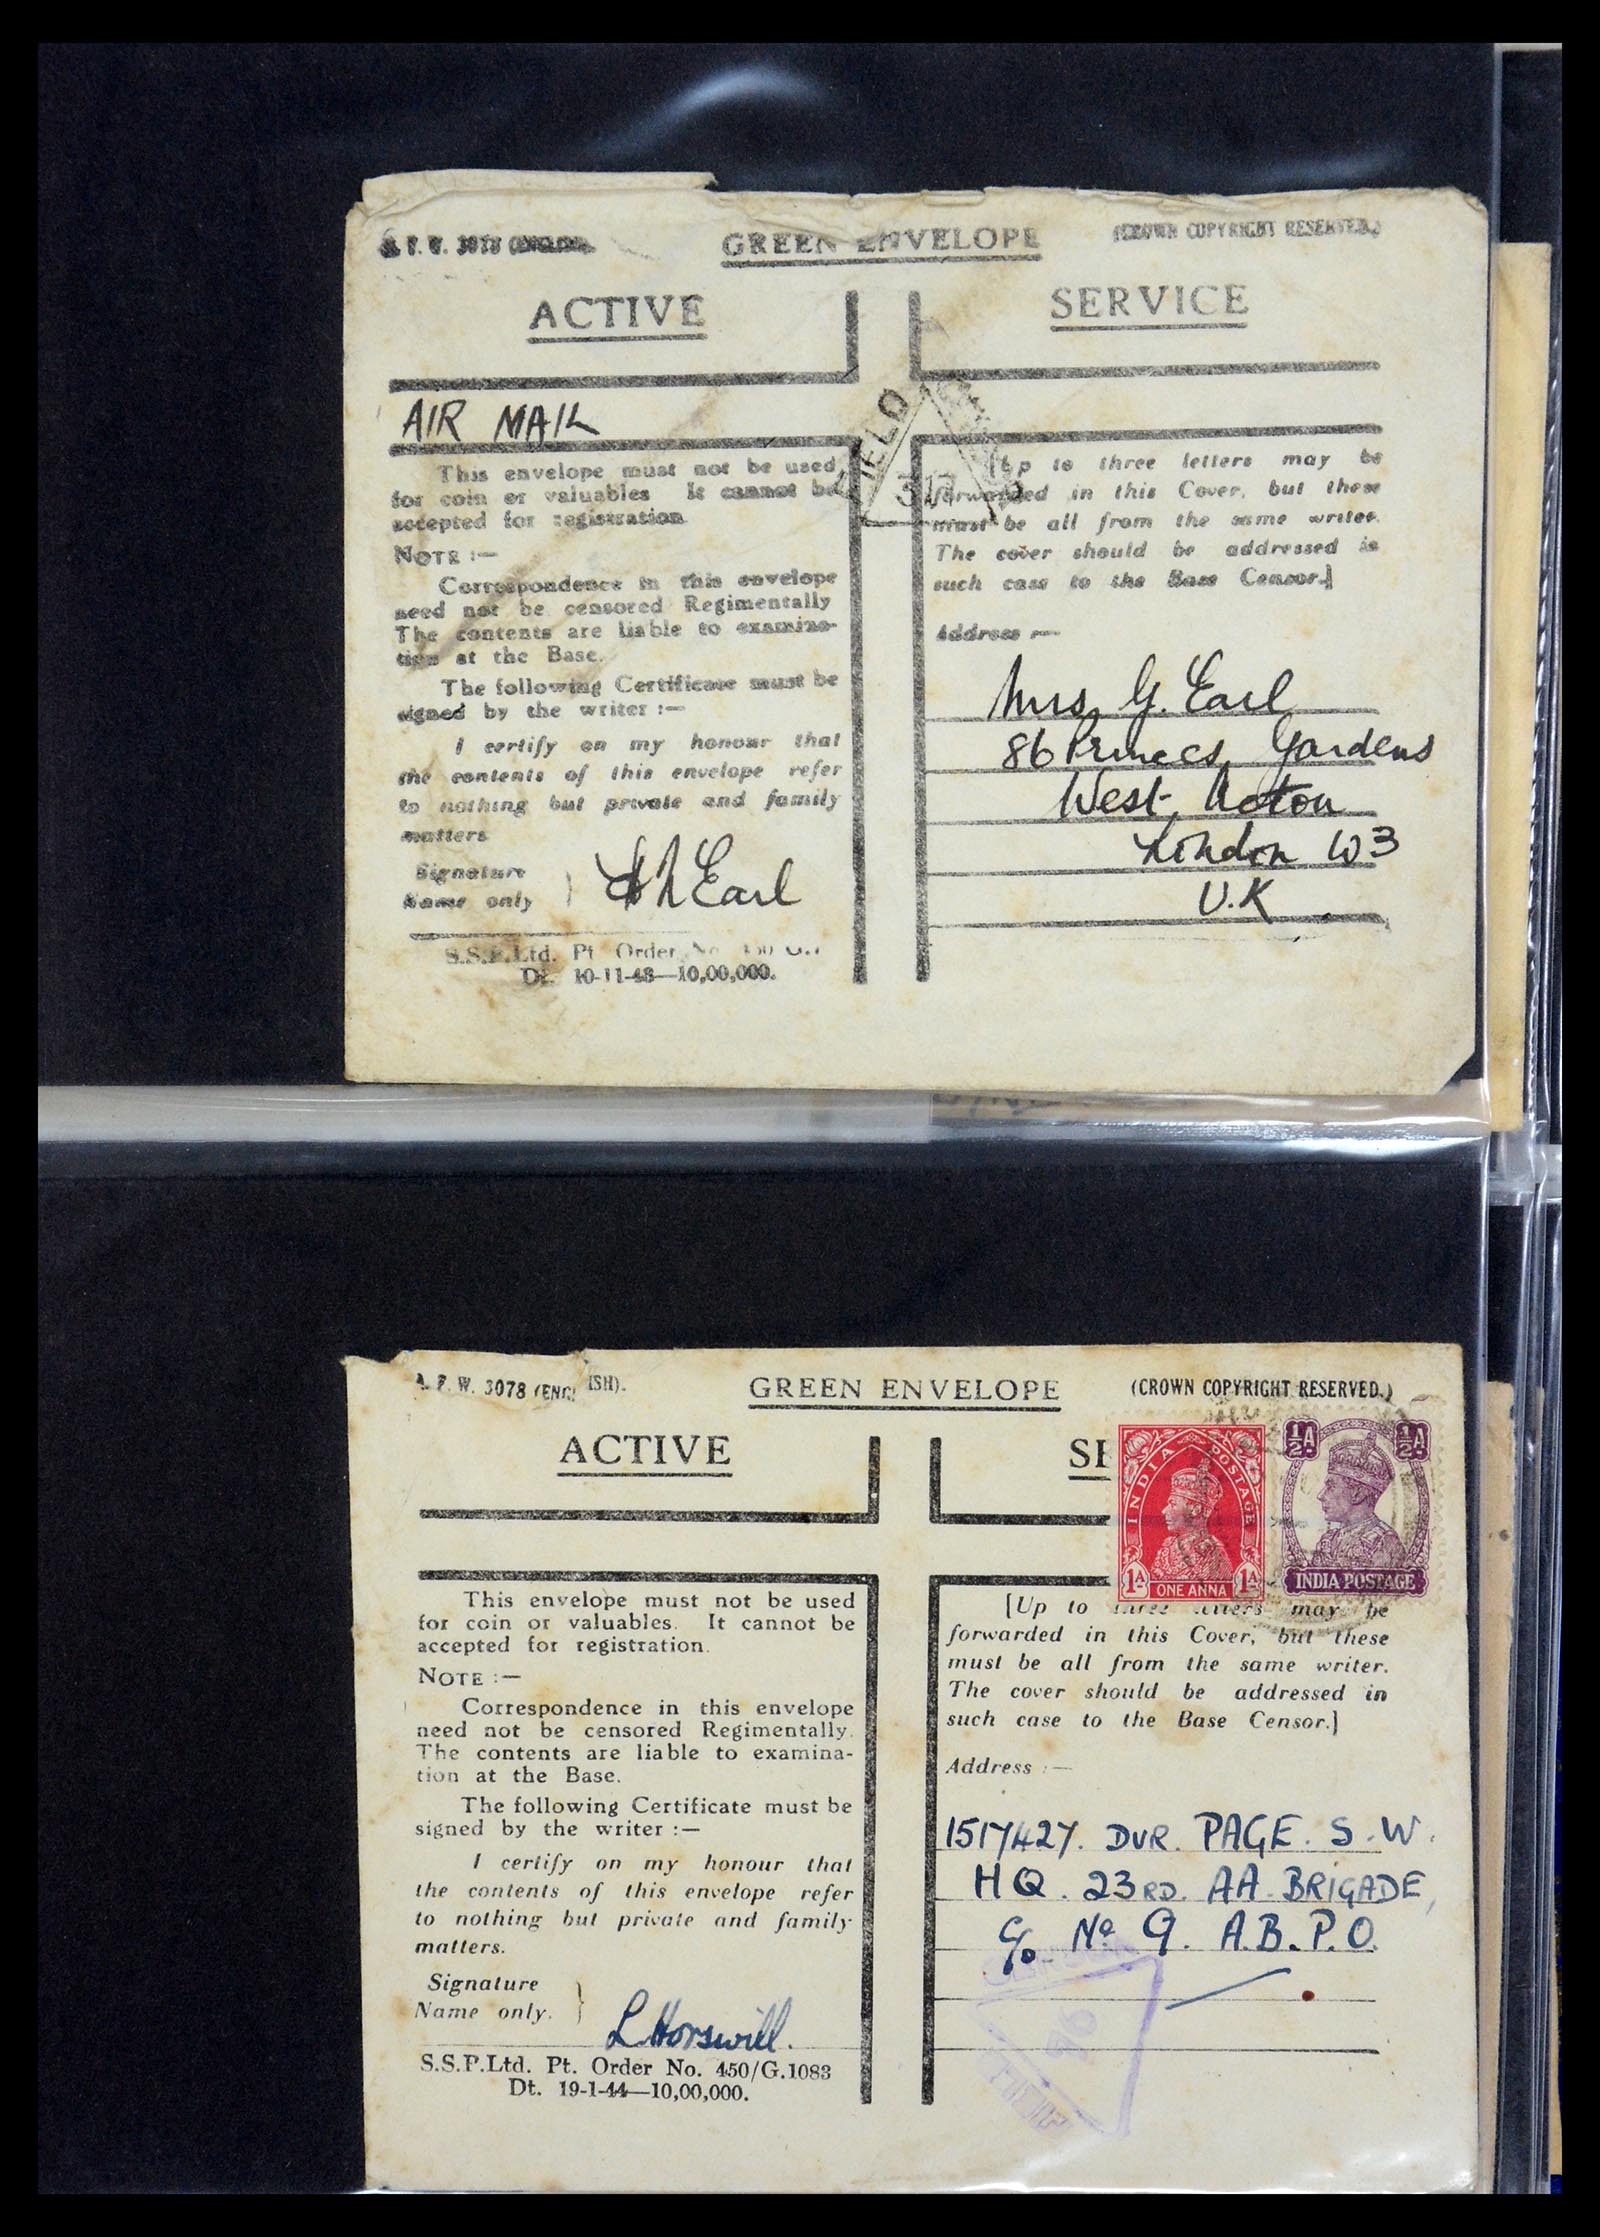 A. F. W. 3078 (ENGLISH).
GREEN ENVELOPE
(CROWN COPYRIGHT RESERVED.)
ACTIVE
SERVICE
AIR MAIL
This envelope must not be used
for coin or valuables It cannot be
accepted for registration
NOTE :—
Correspondence in this envelope
need not be censored Regimentally
The contents are liable to examina-
tion at the Base.
The following Certificate must be
signed by the writer :—
I certify on my honour that
the contents of this envelope refer
to nothing but private and family
matters
Signature
Name only }
Earl
S.S.P.Ltd. Pt Order No. 450
Dt. 10-11-43—10,00,000.
FIELD
317
[Up to three letters may be
forwarded in this Cover, but these
must be all from the same writer.
The cover should be addressed in
such case to the Base Censor.]
Address :—
Mrs G. Earl
86 Princes Gardens
West Acton
London W3
U.K
A. F. W. 3078 (ENGLISH).
GREEN ENVELOPE
(CROWN COPYRIGHT RESERVED.)
ACTIVE
SE
INDIA POSTAGE
1A ONE ANNA 1A
½A ½A
INDIA POSTAGE
This envelope must not be used
for coin or valuables. It cannot be
accepted for registration.
NOTE :—
Correspondence in this envelope
need not be censored Regimentally.
The contents are liable to examina-
tion at the Base.
The following Certificate must be
signed by the writer :—
I certify on my honour that
the contents of this envelope refer
to nothing but private and family
matters.
Signature
Name only. }
L Horswill.
S.S.P.Ltd. Pt. Order No. 450/G.1083
Dt. 19-1-44—10,00,000.
[Up to three letters may be
forwarded in this Cover, but these
must be all from the same writer.
The cover should be addressed in
such case to the Base Censor.]
Address :—
1517427. DVR. PAGE. S.W.
HQ. 23RD. AA. BRIGADE,
C/o No 9. A.B.P.O.